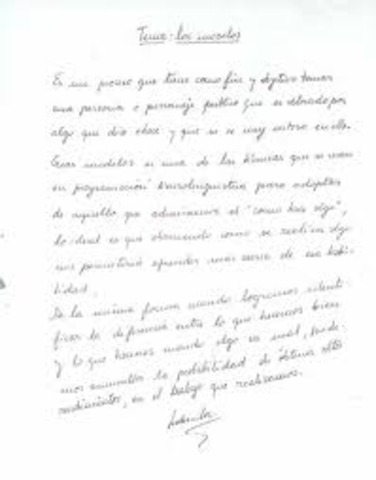 Tema: los modelos
Es un proceso que tiene como fin y objetivo tomar
una persona o personaje publico que es valorado por
algo que dio clase y que se es muy exitoso en ello.
Crear modelos es una de las técnicas que se usan
en programación Neurolinguistica para adoptar
de aquello que admiramos el "como hace algo",
lo ideal es que observando como se realiza algo
nos permitirá aprender más acerca de esa habi-
lidad.
De la misma forma cuando logramos identi-
ficar la diferencia entre lo que hacemos bien
y lo que hacemos cuando algo va mal, pode-
mos aumentar la posibilidad de obtener altos
rendimientos, en el trabajo que realizamos.